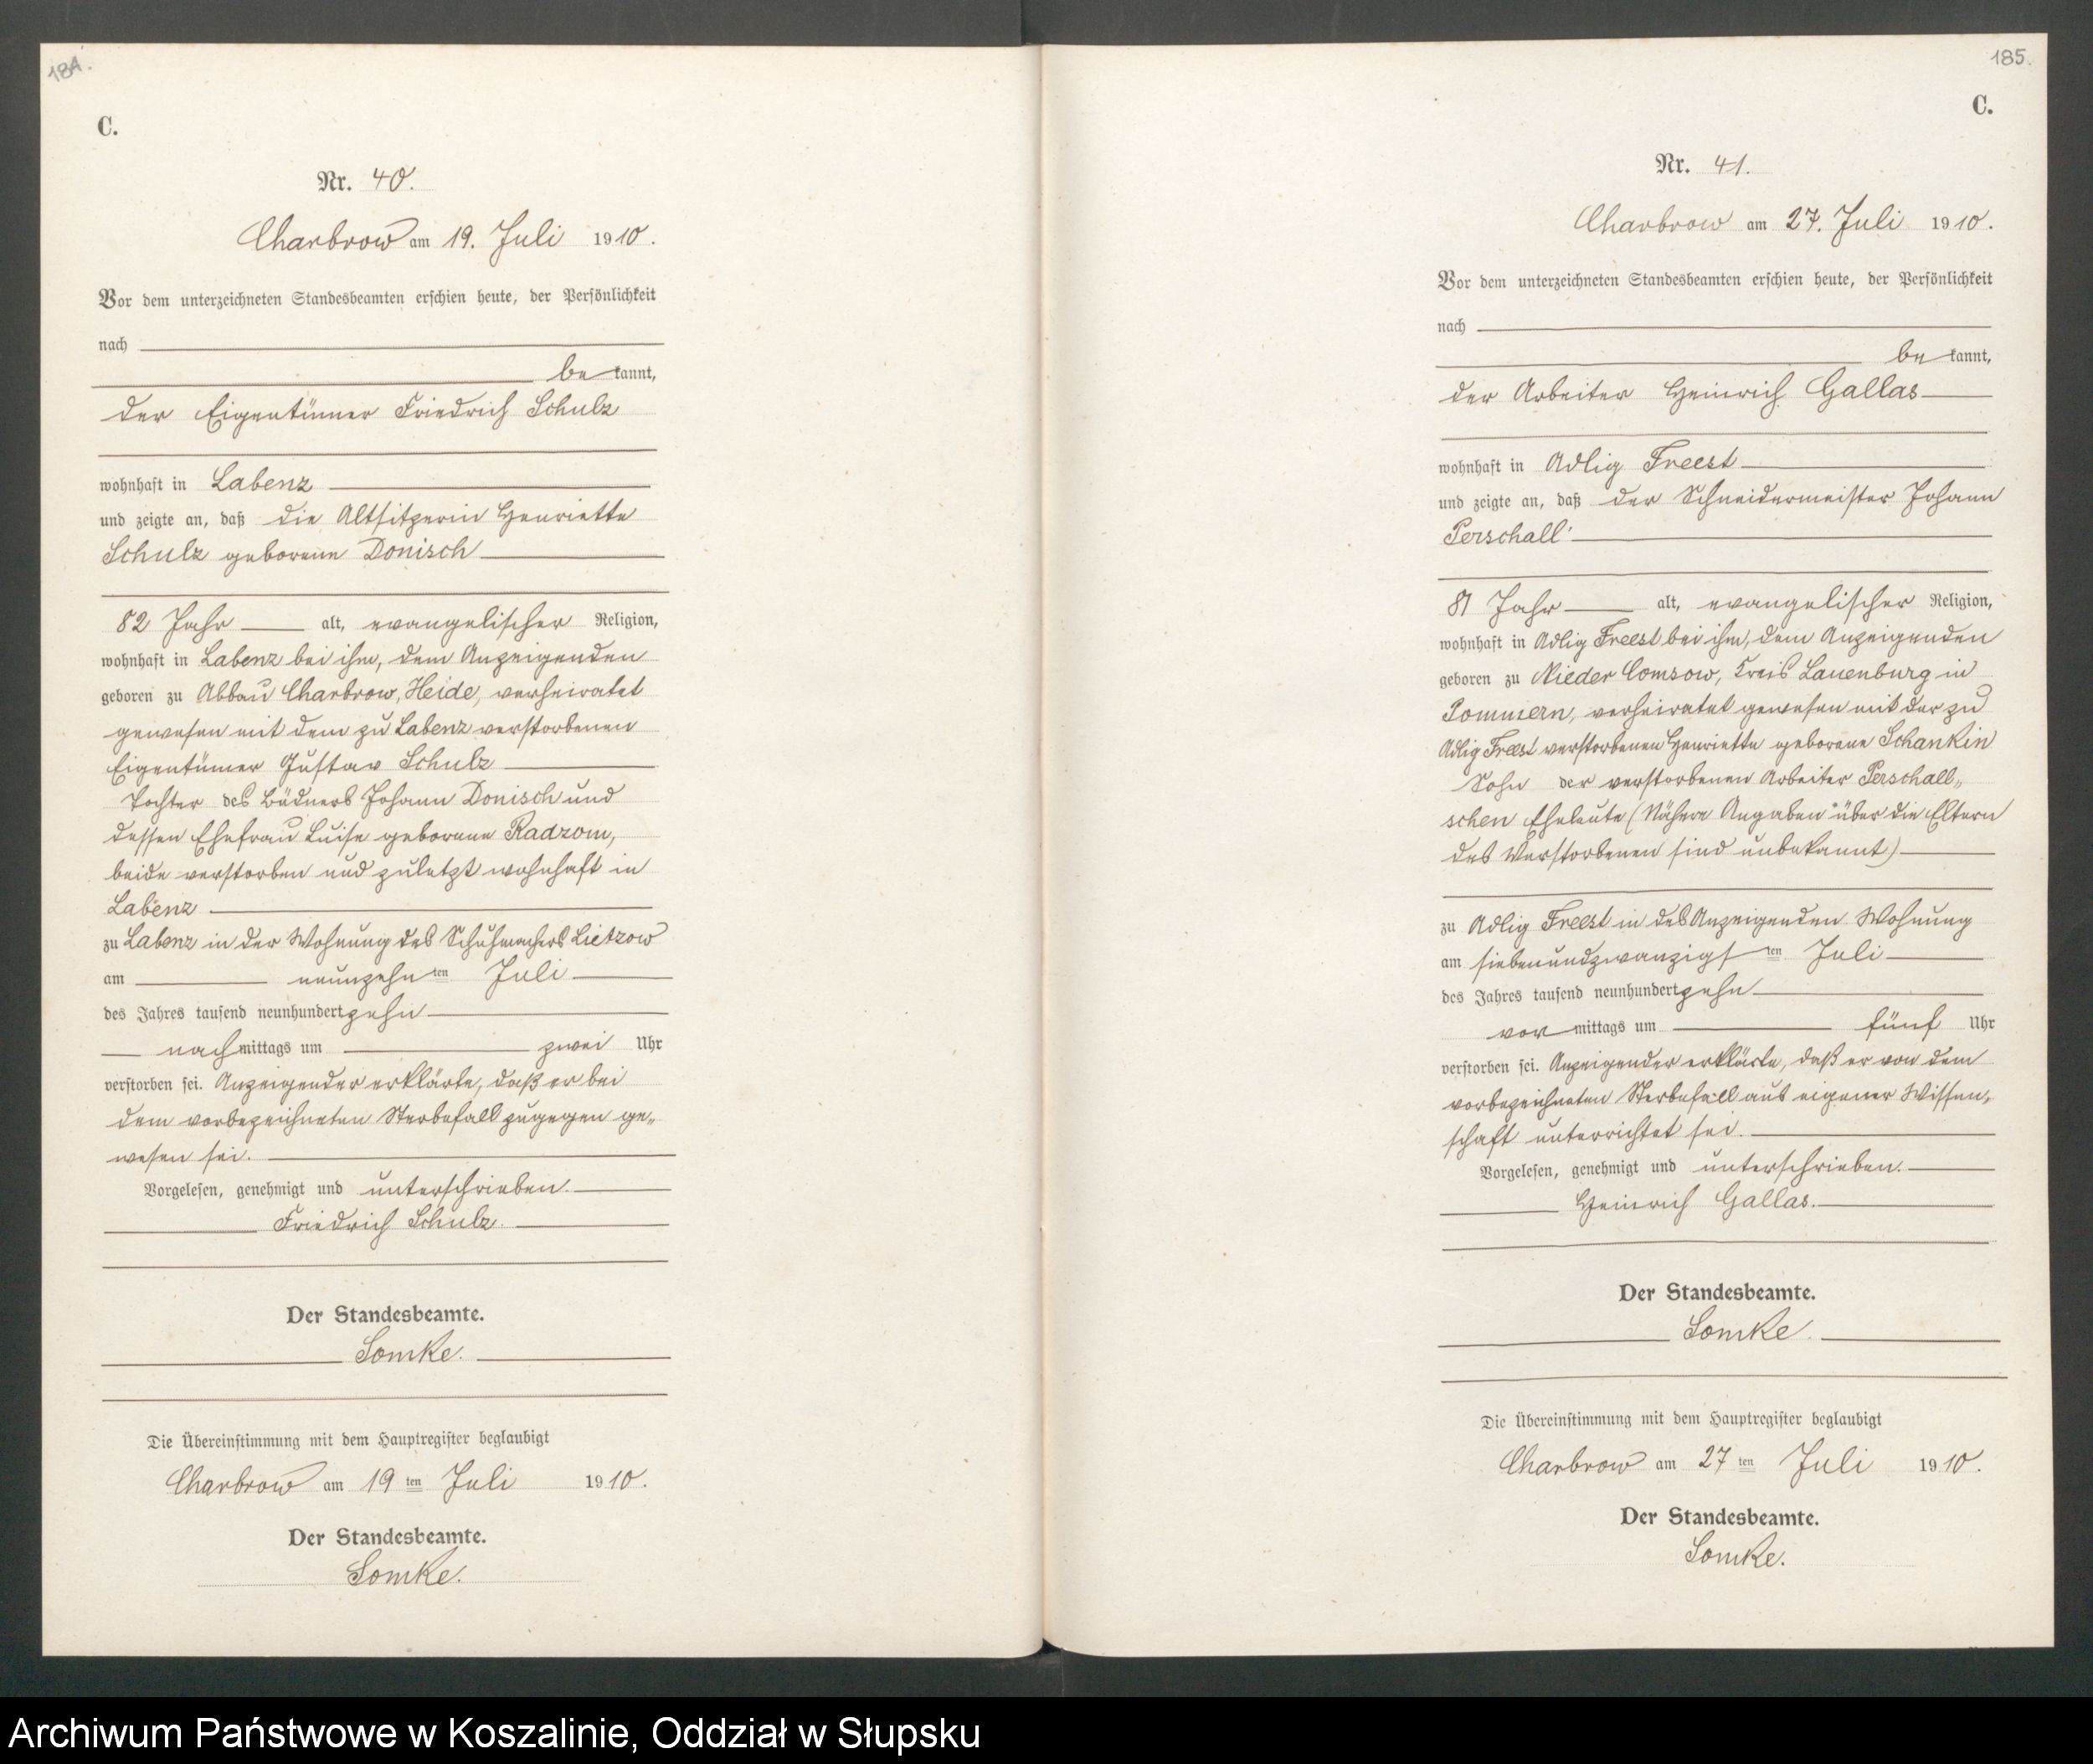 184.
C.
Nr. 40.
Charbrow am 19. Juli 1910.
Vor dem unterzeichneten Standesbeamten erschien heute, der Persönlichkeit
nach
be kannt,
der Eigentümer Friedrich Schulz
wohnhaft in Labenz
und zeigte an, daß die Altsitzerin Henriette
Schulz geborene Donisch
82 Jahr alt, evangelischer Religion,
wohnhaft in Labenz bei ihm, dem Anzeigenden
geboren zu Abbau Charbrow, Heide, verheiratet
gewesen mit dem zu Labenz verstorbenen
Eigentümer Gustav Schulz
Tochter des Büdners Johann Donisch und
dessen Ehefrau Luise geborene Radzom,
beide verstorben und zuletzt wohnhaft in
Labenz
zu Labenz in der Wohnung des Schuhmachers Lietzow
am neunzehn ten Juli
des Jahres tausend neunhundert zehn
nach mittags um zwei Uhr
verstorben sei. Anzeigender erklärte, daß er bei
dem vorbezeichneten Sterbefall zugegen ge„
wesen sei.
Vorgelesen, genehmigt und unterschrieben.
Friedrich Schulz.
Der Standesbeamte.
Lomke.
Die Übereinstimmung mit dem Hauptregister beglaubigt
Charbrow am 19 ten Juli 1910.
Der Standesbeamte.
Lomke.
185.
C.
Nr. 41.
Charbrow am 27. Juli 1910.
Vor dem unterzeichneten Standesbeamten erschien heute, der Persönlichkeit
nach
be kannt,
der Arbeiter Heinrich Gallas
wohnhaft in Adlig Freest
und zeigte an, daß der Schneidermeister Johann
Perschall
81 Jahr alt, evangelischer Religion,
wohnhaft in Adlig Freest bei ihm, dem Anzeigenden
geboren zu Nieder Comsow, Kreis Lauenburg in
Pommern, verheiratet gewesen mit der zu
Adlig Freest verstorbenen Henriette geborene Schankin
Sohn der verstorbenen Arbeiter Perschall„
schen Eheleute (Nähere Angaben über die Eltern
des Verstorbenen sind unbekannt)
zu Adlig Freest in des Anzeigenden Wohnung
am siebenundzwanzigs ten Juli
des Jahres tausend neunhundert zehn
vor mittags um fünf Uhr
verstorben sei. Anzeigender erklärte, daß er von dem
vorbezeichneten Sterbefall aus eigener Wissen„
schaft unterrichtet sei.
Vorgelesen, genehmigt und unterschrieben.
Heinrich Gallas.
Der Standesbeamte.
Lomke.
Die Übereinstimmung mit dem Hauptregister beglaubigt
Charbrow am 27 ten Juli 1910.
Der Standesbeamte.
Lomke.
Archiwum Państwowe w Koszalinie, Oddział w Słupsku